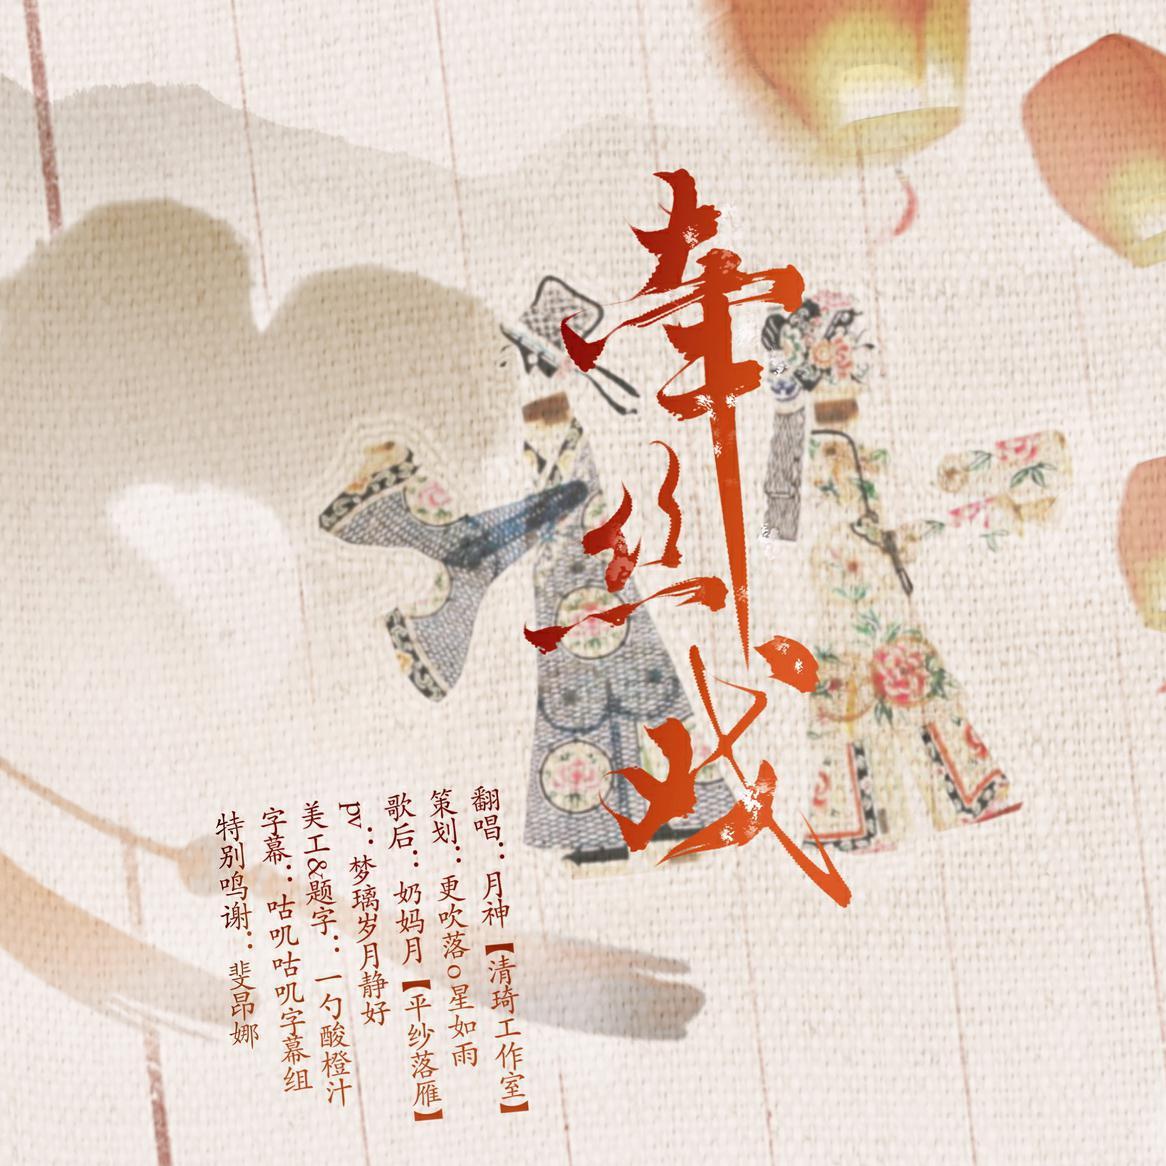 牵丝戏
翻唱：月神【清琦工作室】
策划：更吹落o星如雨
歌后：奶妈月【平纱落雁】
pv：梦璃岁月静好
美工&题字：一勺酸橙汁
字幕：咕叽咕叽字幕组
特别鸣谢：斐昂娜